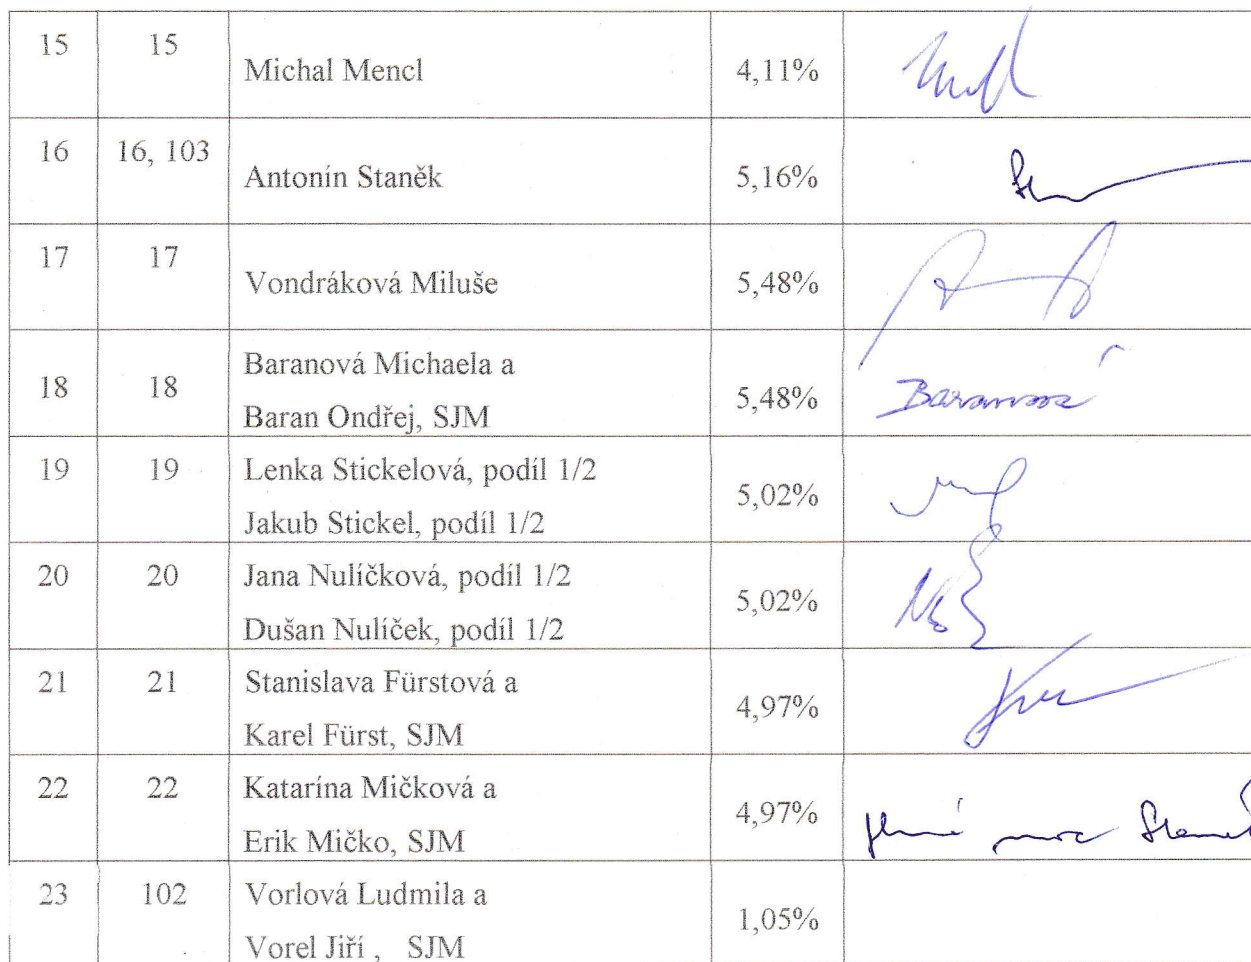 15 15 Michal Mencl 4,11%
16 16, 103 Antonín Staněk 5,16%
17 17 Vondráková Miluše 5,48%
18 18 Baranová Michaela a
Baran Ondřej, SJM 5,48% Baranová
19 19 Lenka Stickelová, podíl 1/2
Jakub Stickel, podíl 1/2 5,02%
20 20 Jana Nulíčková, podíl 1/2
Dušan Nulíček, podíl 1/2 5,02%
21 21 Stanislava Fürstová a
Karel Fürst, SJM 4,97%
22 22 Katarína Mičková a
Erik Mičko, SJM 4,97% plná moc Staněk
23 102 Vorlová Ludmila a
Vorel Jiří , SJM 1,05%